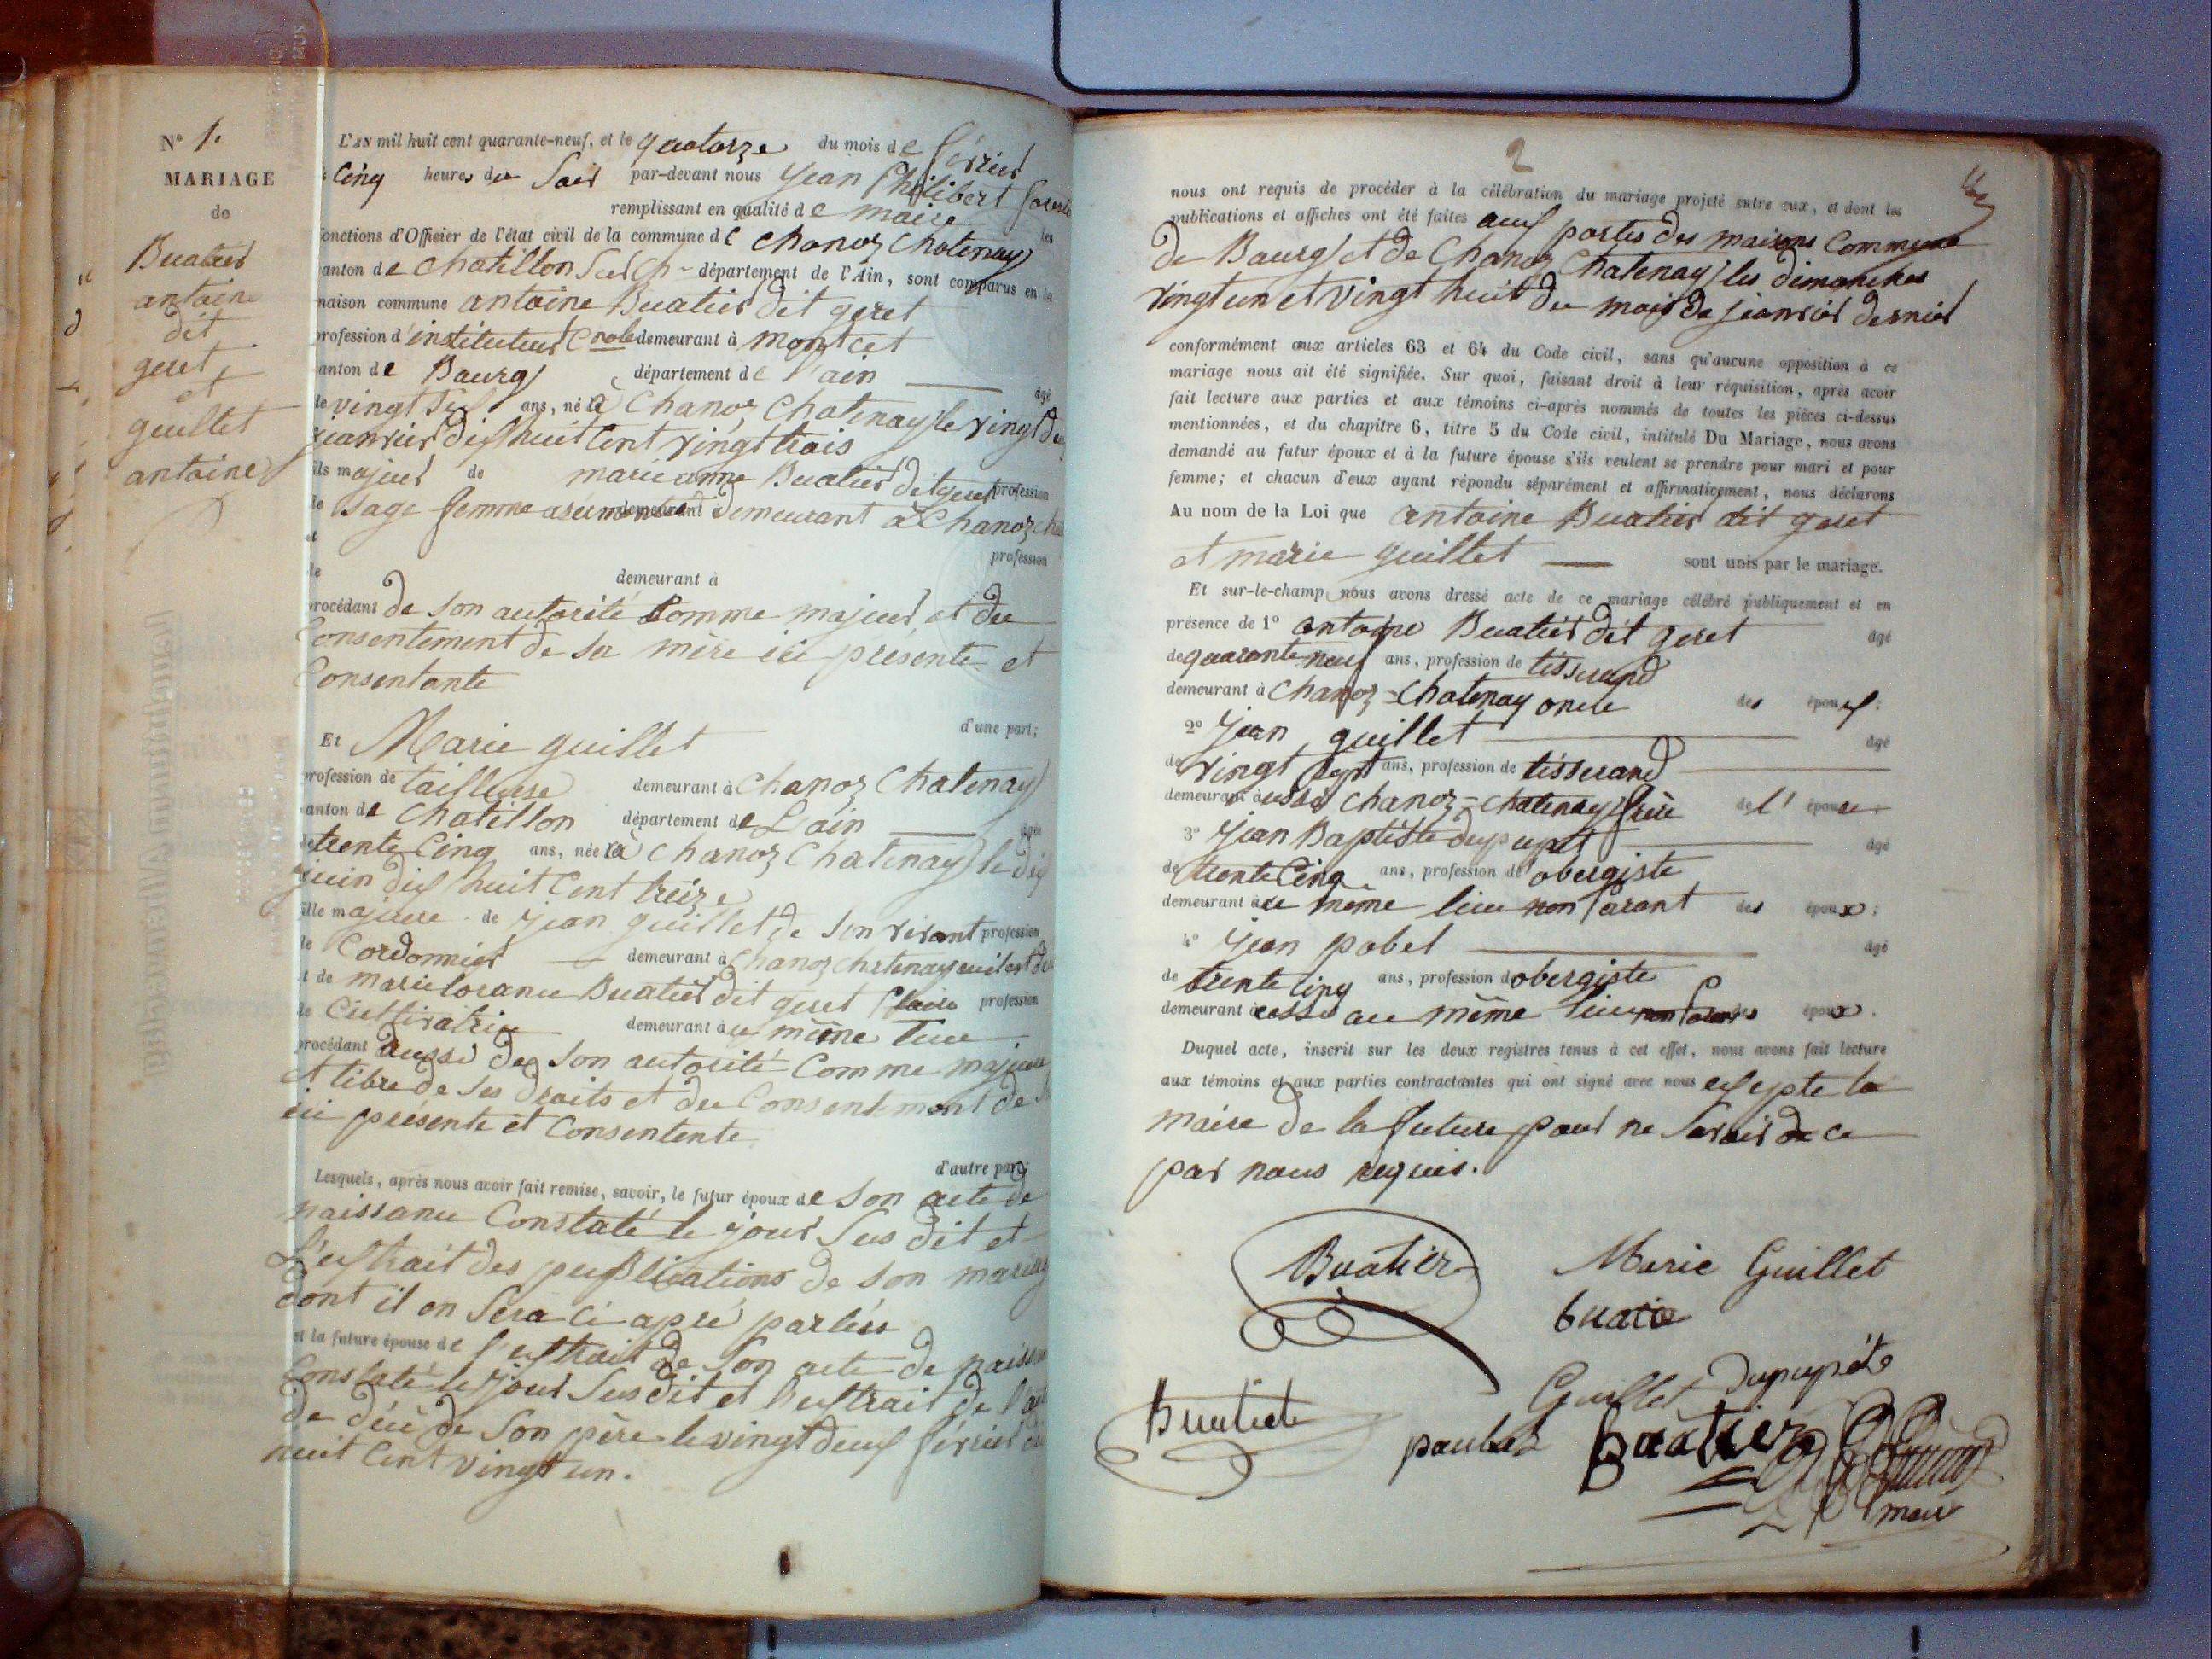 N° 1.
MARIAGE
de
Buatier
antoine
dit
geret
et
guillet
antoine
L'AN mil huit cent quarante-neuf, et le quatorze du mois de février
cinq heures du Soir par-devant nous Jean Philibert
remplissant en qualité de maire les
fonctions d'Officier de l'état civil de la commune de Chanoz Chatenay
canton de Chatillon Sur Ch- département de l'Ain, sont comparus en la
maison commune antoine Buatier dit geret
profession d'instituteur demeurant à montcet
canton de Bourg département de l'ain âgé
de vingt Six ans, né à Chanoz Chatenay le vingt
janvier dix huit Cent vingt trois
fils majeur de marie anne Buatier dit geret profession
de Sage femme demeurant à Chanoz
et profession
de demeurant à
procédant de Son autorité Comme majeur et du
Consentement de Sa mère ici présente et
Consentante
d'une part;
Et Marie guillet
profession de tailleuse demeurant à Chanoz Chatenay
canton de Chatillon département de L'ain âgée
de trente Cinq ans, née à Chanoz Chatenay le dix
juin dix huit Cent treize
fille majeure de jean guillet de Son vivant profession
de Cordonnier demeurant à Chanoz chatenay
et de marie Buatier dit geret profession
de Cultivatrice demeurant à même lieu
procédant aussi de Son autorité Comme majeure
et libre de Ses droits et du Consentement de
ici présente et Consentente
d'autre part.
Lesquels, après nous avoir fait remise, savoir, le futur époux de Son acte de
naissance Constaté le jour Sus dit et
L'extrait des publications de Son mariage
dont il en Sera ci apré
et la future épouse de l'extrait de Son acte de
Constaté le jour Sus dit et l'extrait de
de décé de Son père le vingt deux février
huit Cent vingt un.
2
nous ont requis de procéder à la célébration du mariage projeté entre eux, et dont les
publications et affiches ont été faites aux portes des maisons Commune
de Bourg et de Chanoz Chatenay les dimanches
vingt un et vingt huit du mois de janvier dernier
conformément aux articles 63 et 64 du Code civil, sans qu'aucune opposition à ce
mariage nous ait été signifiée. Sur quoi, faisant droit à leur réquisition, après avoir
fait lecture aux parties et aux témoins ci-après nommés de toutes les pièces ci-dessus
mentionnées, et du chapitre 6, titre 5 du Code civil, intitulé Du Mariage, nous avons
demandé au futur époux et à la future épouse s'ils veulent se prendre pour mari et pour
femme; et chacun d'eux ayant répondu séparément et affirmativement, nous déclarons
Au nom de la Loi que antoine Buatier dit geret
et marie guillet sont unis par le mariage.
Et sur-le-champ nous avons dressé acte de ce mariage célébré publiquement et en
présence de 1° antoine Buatier dit geret âgé
de quarante neuf ans, profession de tisserand
demeurant à Chanoz-Chatenay oncle des époux;
2° Jean guillet âgé
de vingt Sept ans, profession de tisserand
demeurant aussi Chanoz-chatenay frère de l'épouse
3° Jean Baptiste âgé
de trente Cinq ans, profession d'obergiste
demeurant à ce même lieu non parant des époux;
4° Jean pobel âgé
de trente Cinq ans, profession d'obergiste
demeurant aussi au même lieu des époux.
Duquel acte, inscrit sur les deux registres tenus à cet effet, nous avons fait lecture
aux témoins et aux parties contractantes qui ont signé avec nous excepte la
maire de la future pour ne Savoir de ce
par nous requis.
Buatier Marie Guillet
Guillet
Buatier
maire